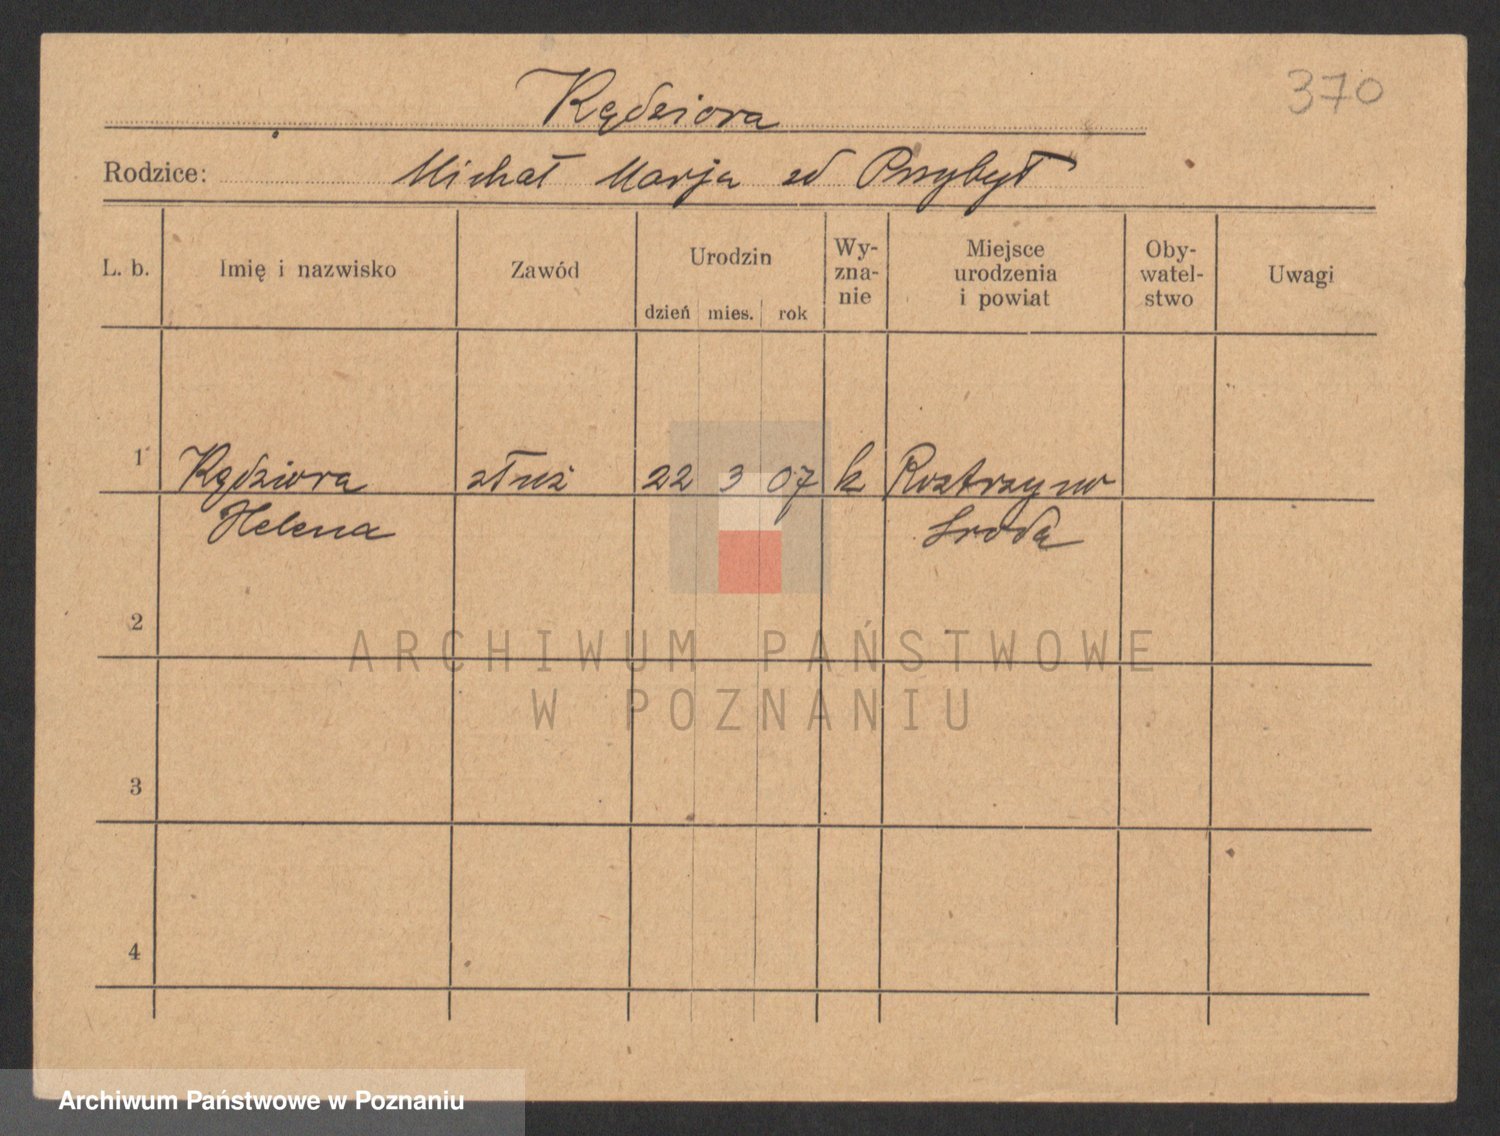 370
Kędziora
Rodzice: Michał Marja zd Przybył
L. b. Imię i nazwisko Zawód Urodzin dzień mies. rok Wy-zna-nie Miejsce urodzenia i powiat Oby-watel-stwo Uwagi
1 Kędziora służ 22 3 07 k
Helena Środa
2
ARCHIWUM PAŃSTWOWE
W POZNANIU
3
4
Archiwum Państwowe w Poznaniu